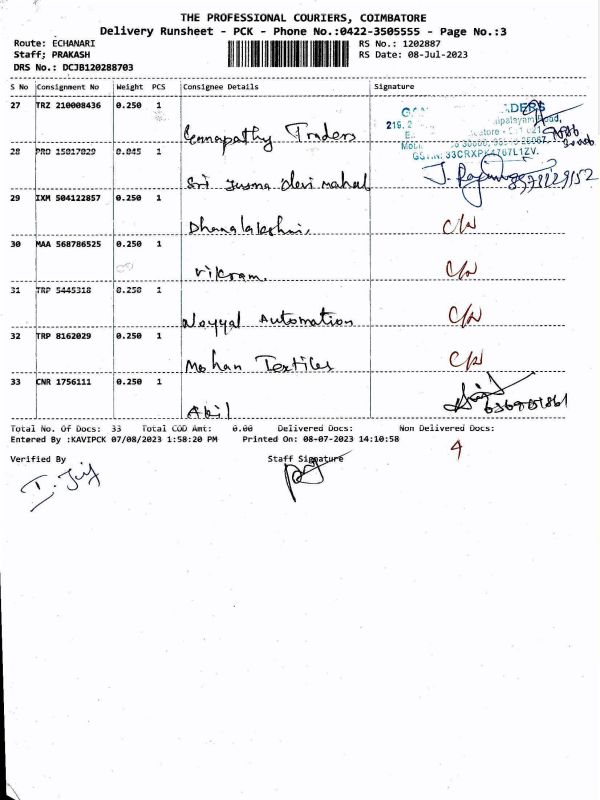 THE PROFESSIONAL COURIERS, COIMBATORE
Delivery Runsheet - PCK - Phone No.:0422-3505555 - Page No.:3
Route: ECHANARI RS No.: 1202887
Staff; PRAKASH RS Date: 08-Jul-2023
DRS No.: DCJB120288703
S No Consignment No Weight PCS Consignee Details Signature
27 TRZ 210008436 0.250 1
Gannapathy Traders
28 PRO 15017029 0.045 1
GSTIN: 33CRXPK4767L1ZV.
Sri Devi Mahal
29 IXM 504122857 0.250 1
Dhanalakshmi C/N
30 MAA 568786525 0.250 1
Vikram C/N
31 TRP 5445318 0.250 1
Noyyal Automation C/N
32 TRP 8162029 0.250 1
Mohan Textiles C/N
33 CNR 1756111 0.250 1
Akil
Total No. Of Docs: 33 Total COD Amt: 0.00 Delivered Docs: Non Delivered Docs:
Entered By :KAVIPCK 07/08/2023 1:58:20 PM Printed On: 08-07-2023 14:10:58 4
Verified By Staff Signature